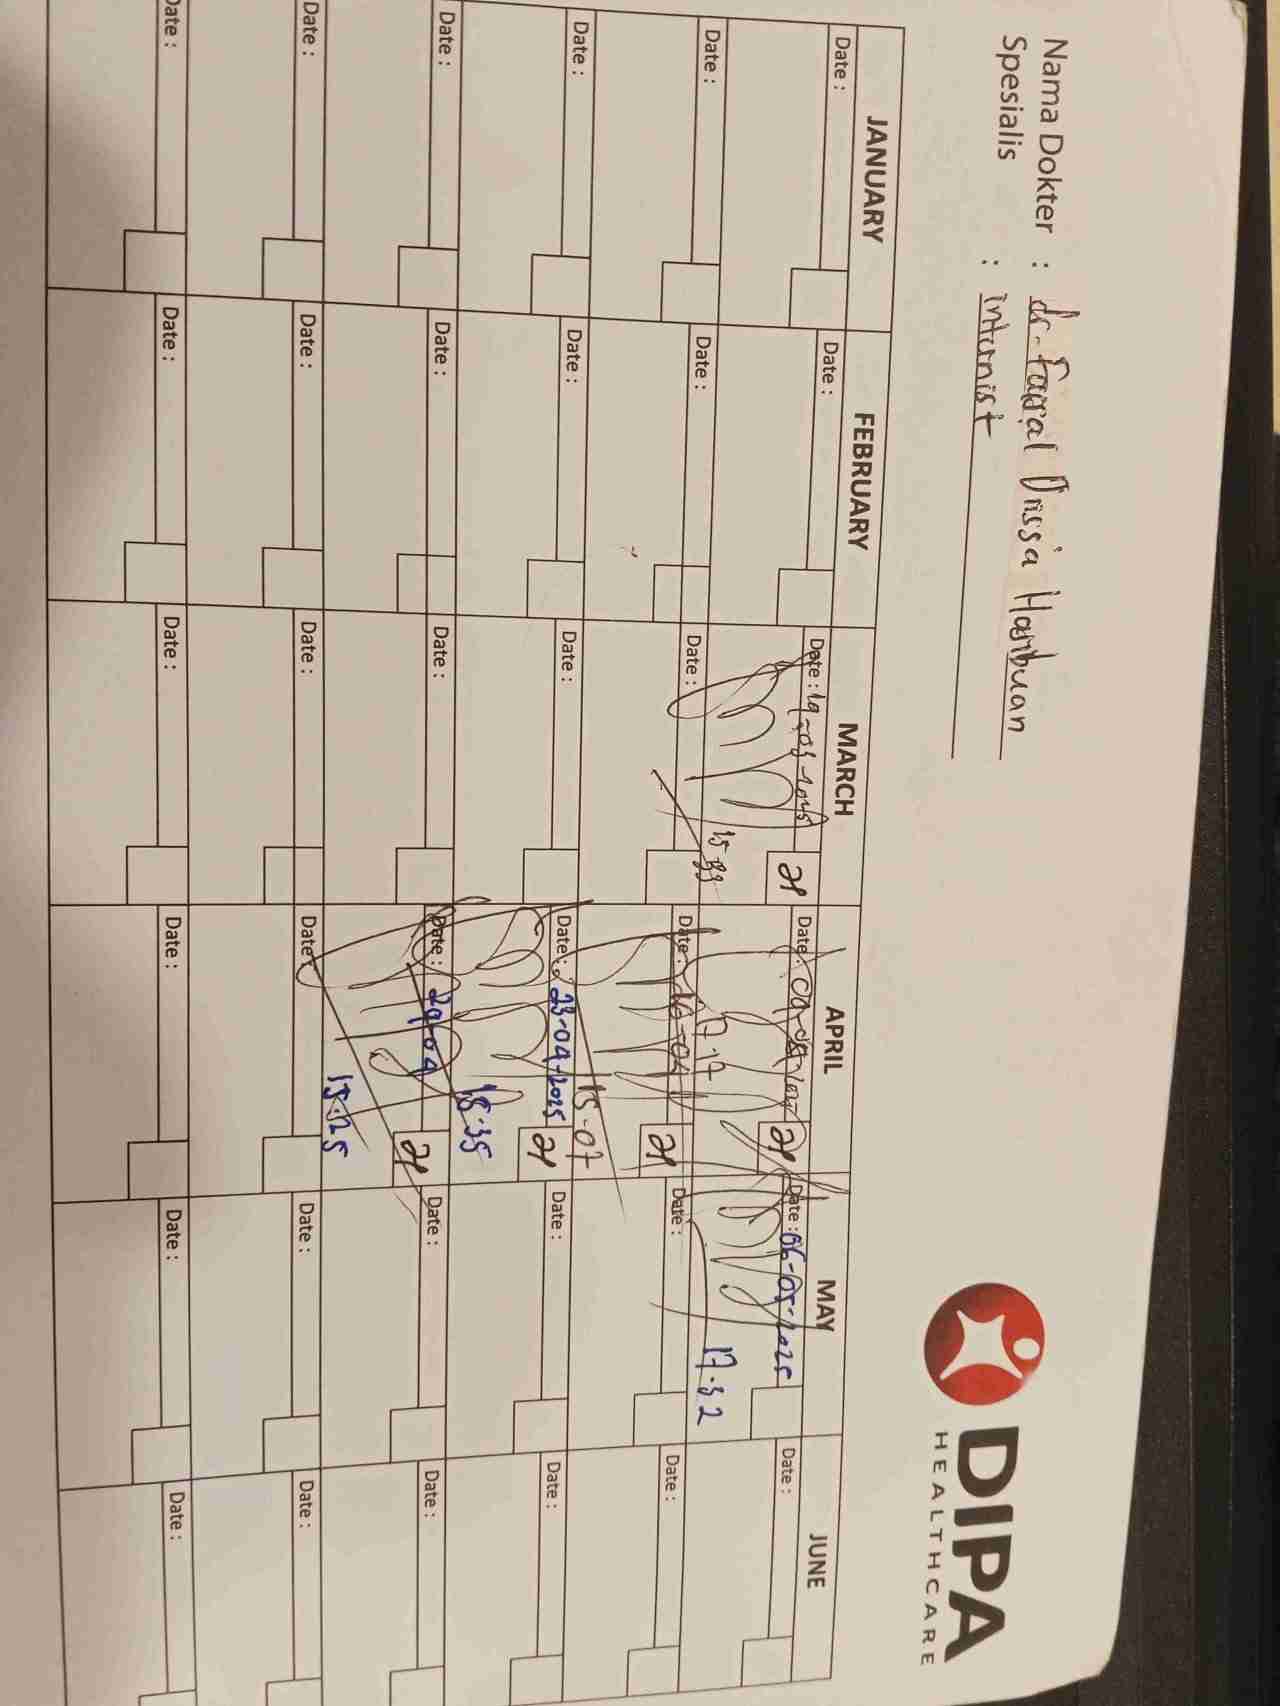 Nama Dokter :
Spesialis : internist
DIPA
HEALTHCARE
JANUARY FEBRUARY MARCH APRIL MAY JUNE
Date : Date : Date : 19-03-2025 Date : Date : 06-05-2025 Date :
15 33 17.17 17.32
Date : Date : Date : Date : 16-04 Date : Date :
15-07
Date : Date : Date : Date : 23-04-2025 Date : Date :
15.35
Date : Date : Date : Date : 29-04 Date : Date :
15.25
Date : Date : Date : Date : Date : Date :
Date : Date : Date : Date : Date : Date :